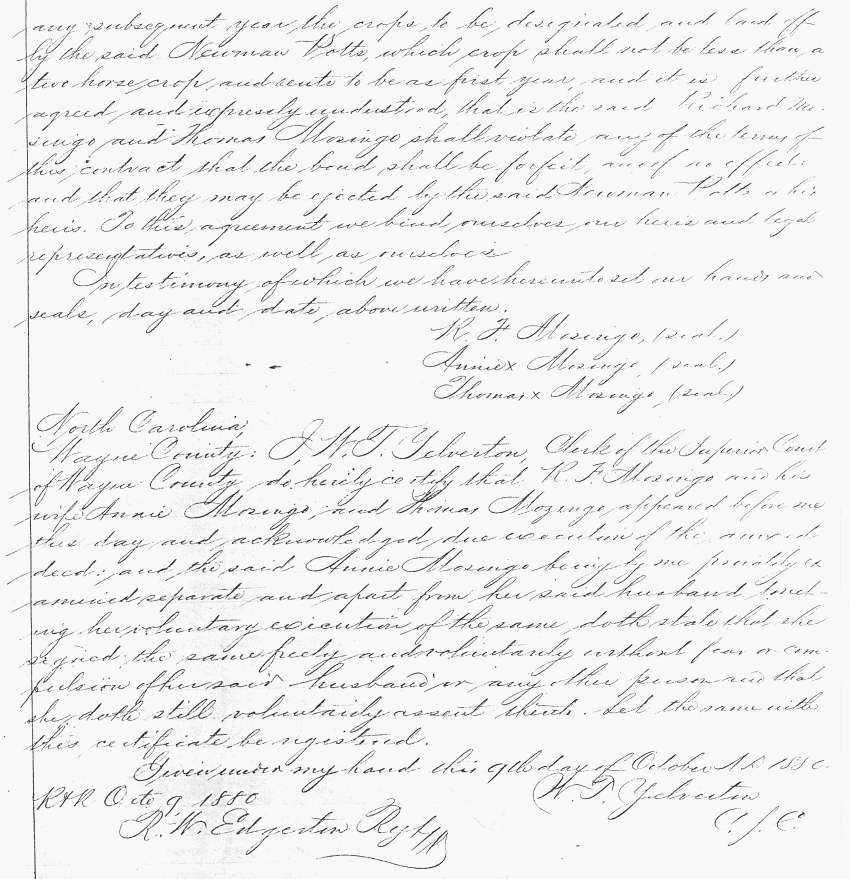 any subsequent year the crops to be, designated and laid off
by the said Newman Potts, which crop shall not be less than, a
two horse, crop, and rents to be as first year, and it is further
agreed, and expressly understood, that is the said Richard Mo-
singo and Thomas Mosingo shall violate, any of the terms of
this, contract that the bond shall be forfeit, and of no effect:
and that they may be ejected by the said Newman Potts or his
heirs. To this, agreement we bind ourselves, our heirs and legal
representatives, as well as ourselves
In testimony of which we have hereunto set our hands and
seals, day and date, above written.
R. F. Mosingo, (seal.)
Annie x Mosingo, (seal.)
Thomas x Mosingo, (seal.)
North Carolina,
Wayne County: I, W. T. Yelverton, Clerk of the Superior Court
of Wayne County, do, hereby certify that R. F. Mosingo and his
wife Annie Mosingo, and Thomas Mozingo, appeared before me
this day and acknowledged, due execution of the annexed
deed: and, the said Annie Mosingo being by me privately ex
amined, separate, and apart from her said husband, touch-
ing her voluntary execution, of the same, doth state that she
signed the same freely and voluntarily without fear or com-
pulsion of her said husband or, any other person and that
she, doth still voluntarily assent thereto. Let the same with
this, certificate be registered.
Given under my hand this 9th day of October A D 1880.
R & R Octo 9, 1880
W. T. Yelverton
C. S. C.
R. W. Edgerton Regt